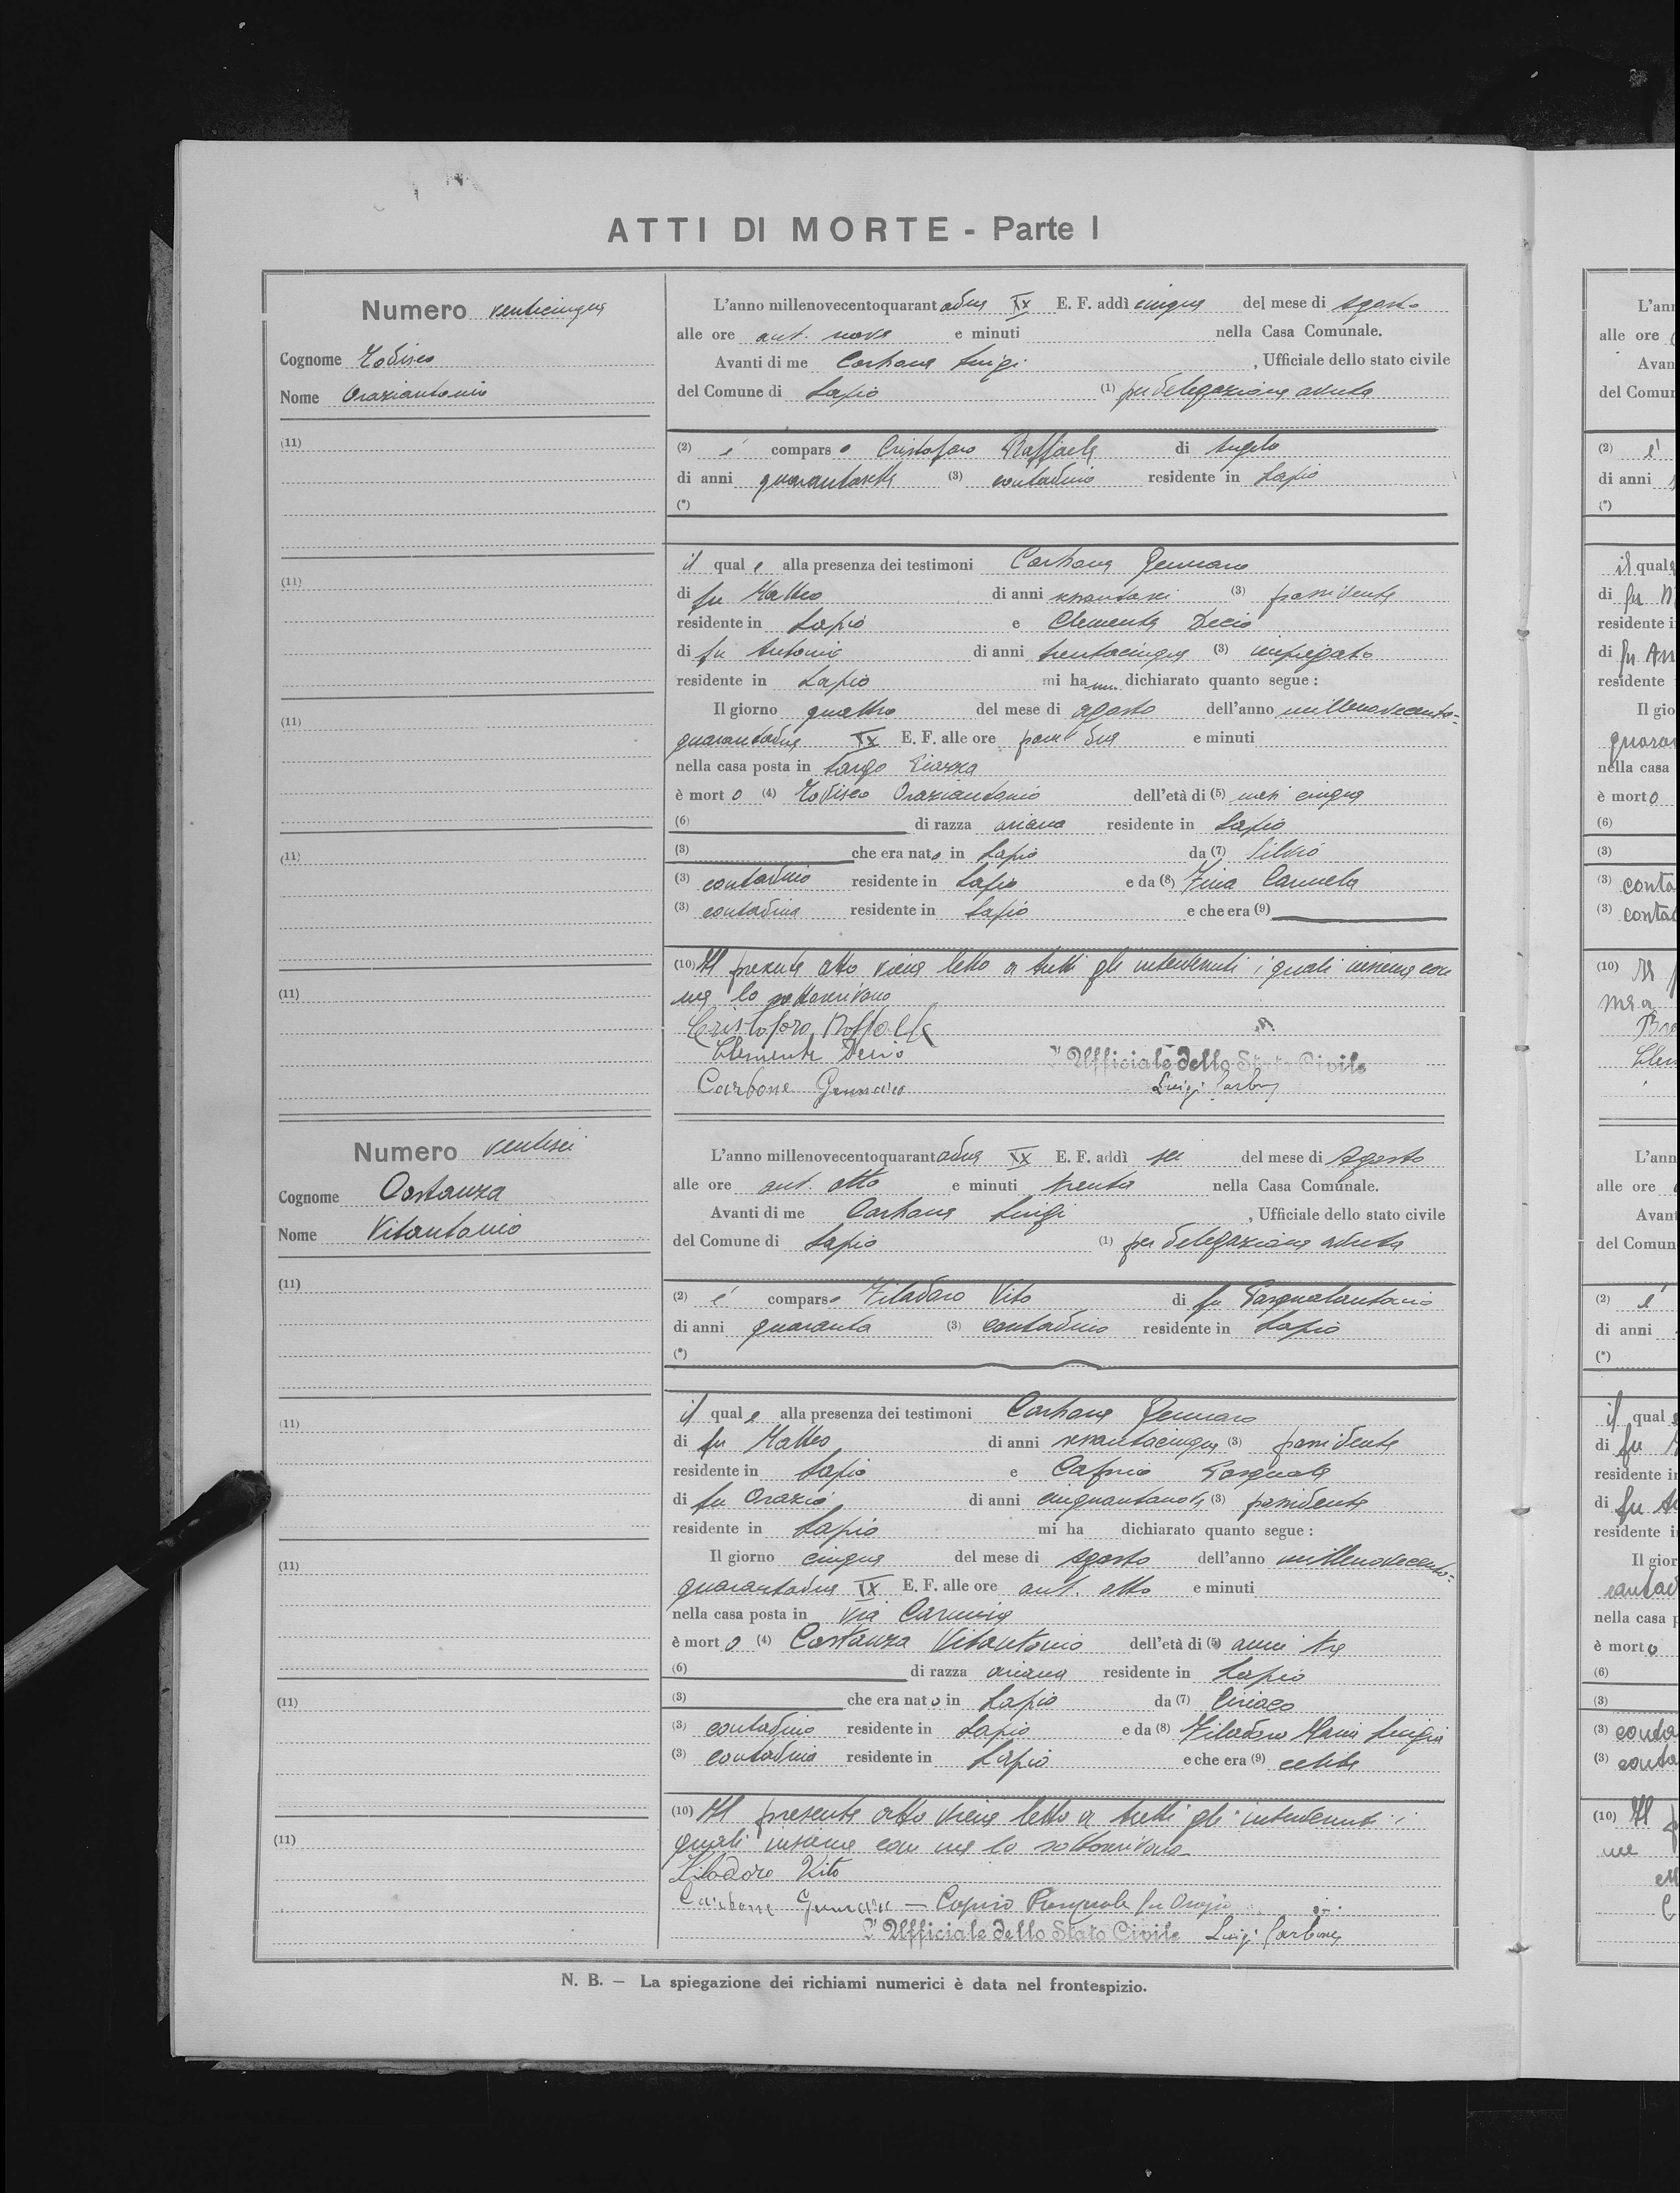 ATTI DI MORTE - Parte I
Numero venticinque
Cognome Modisco
Nome Oraziantonio
(11)
(11)
(11)
(11)
(11)
L'anno millenovecentoquarantadue XX E. F. addì cinque del mese di Agosto
alle ore ant. nove e minuti nella Casa Comunale.
Avanti di me Carbone Luigi , Ufficiale dello stato civile
del Comune di Lapio (1) per delegazione avuta
(2) é comparso Cristofaro Raffaele di Angelo
di anni quarantasette (3) contadino residente in Lapio
(*)
il quale alla presenza dei testimoni Carbone Gennaro
di fu Matteo di anni sessantasei (3) possidente
residente in Lapio e Clemente Decio
di fu Antonio di anni trentacinque (3) impiegato
residente in Lapio mi ha dichiarato quanto segue :
Il giorno quattro del mese di agosto dell'anno millenovecento=
quarantadue XX E. F. alle ore pom. due e minuti
nella casa posta in Largo Piazza
è morto (4) Modisco Oraziantonio dell'età di (5) mesi cinque
(6) di razza ariana residente in Lapio
(3) che era nato in Lapio da (7) Silvio
(3) contadino residente in Lapio e da (8) Zina Carmela
(3) contadina residente in Lapio e che era (9)
(10) Il presente atto viene letto a tutti gli intervenuti i quali insieme con
me lo sottoscrivono
Cristofaro Raffaele
Clemente Decio
L'Ufficiale dello Stato Civile
Carbone Gennaro Luigi Carbone
Numero ventisei
Cognome Costanza
Nome Vitantonio
(11)
(11)
(11)
(11)
(11)
L'anno millenovecentoquarantadue XX E. F. addì sei del mese di Agosto
alle ore ant. otto e minuti trenta nella Casa Comunale.
Avanti di me Carbone Luigi , Ufficiale dello stato civile
del Comune di Lapio (1) per delegazione avuta
(2) é comparso Filadoro Vito di fu Pasqualantonio
di anni quaranta (3) contadino residente in Lapio
(*)
il quale alla presenza dei testimoni Carbone Gennaro
di fu Matteo di anni sessantacinque (3) possidente
residente in Lapio e Caprio Pasquale
di fu Orazio di anni cinquantanove (3) possidente
residente in Lapio mi ha dichiarato quanto segue :
Il giorno cinque del mese di Agosto dell'anno millenovecento=
quarantadue XX E. F. alle ore ant. otto e minuti
nella casa posta in Via
è morto (4) Costanza Vitantonio dell'età di (5) anni tre
(6) di razza ariana residente in Lapio
(3) che era nato in Lapio da (7) Ciriaco
(3) contadino residente in Lapio e da (8) Filadoro Maria Luigia
(3) contadina residente in Lapio e che era (9) celibe
(10) Il presente atto viene letto a tutti gli intervenuti i
quali insieme con me lo sottoscrivono
Filadoro Vito
Carbone Gennaro — Caprio Pasquale fu Orazio
L'Ufficiale dello Stato Civile Luigi Carbone
N. B. — La spiegazione dei richiami numerici è data nel frontespizio.